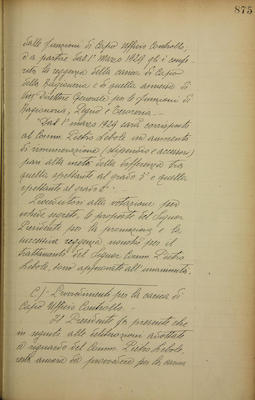 875
dalle funzioni di Capo Ufficio Controllo,
e a partire dal 1° Marzo 1924 gli è confe-
rita la reggenza della carica di Capo
della Ragioneria e di quella annessa di
Vice Direttore Generale per le funzioni di
Ragioneria, Legno e Tesoreria. —
"Dal 1° marzo 1924 sarà corrisposto
al Comm. Pietro Lebole un aumento
di rimunerazione (stipendio e accessori)
pari alla metà della differenza tra
quella spettante al grado 5° e quella
spettante al grado 6°". —
Proceduto alla votazione per
scheda segreta, le proposte del Signor
Presidente per la promozione e la
successiva reggenza, nonché per il
trattamento del Signor Comm. Pietro
Lebole, sono approvate all'unanimità.
C.) - Provvedimenti per la carica di
Capo Ufficio Controllo. —
Il Presidente fa presente che
in seguito alle deliberazioni adottate
a riguardo del Comm. Pietro Lebole,
resta ancora da provvedere per la carica